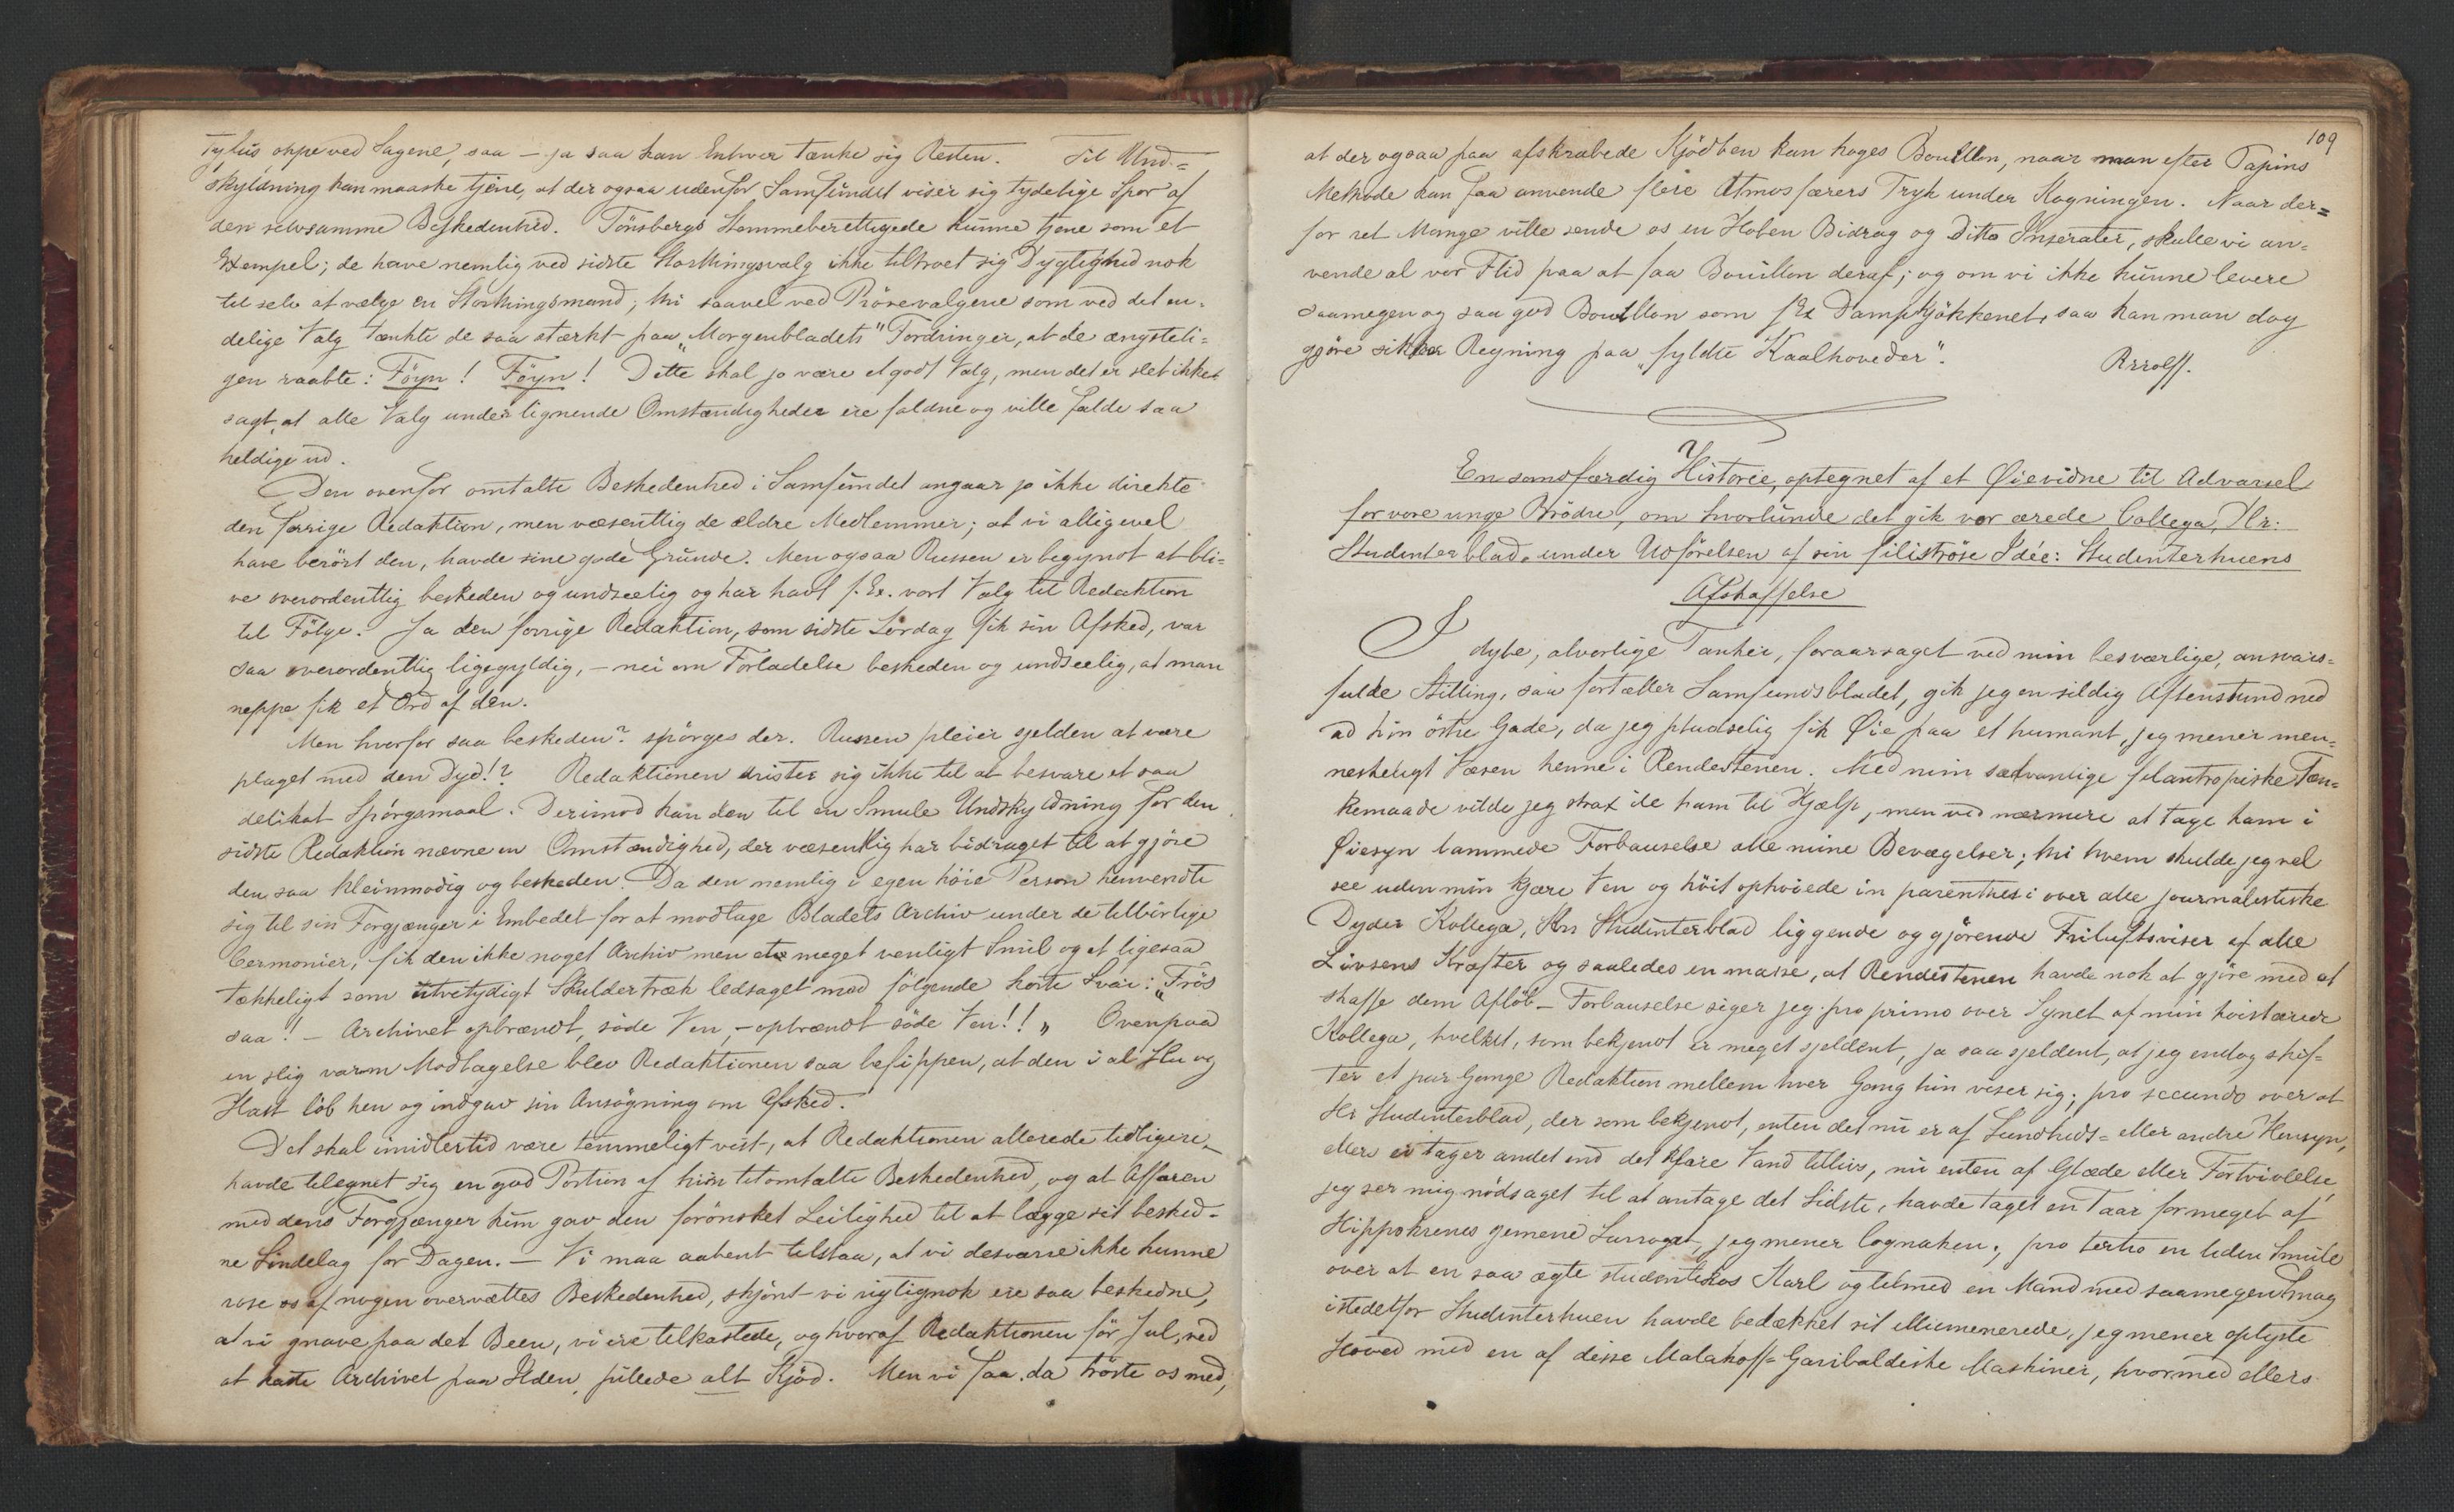 Tylus oppe ved Sagene, saa — ja saa kan Enhver tænke sig Resten. Til Und=
skyldning kan maaske tjene, at der ogsaa udenfor Samfundet viser sig tydelige Spor af
den selvsamme Beskedenhed. Tönsbergs Stemmeberettigede kunne tjene som et
Exempel; de have nemlig ved sidste Storthingsvalg ikke tiltroet sig Dygtighed nok
til selv at vælge en Storthingsmand; thi saavel ved Prövevalgene som ved det en=
delige Valg tænkte de saa stærkt paa „Morgenbladets" Fordringer, at de ængsteli=
gen raabte: Föyn! Föyn! Dette skal jo være et godt Valg, men det er slet ikke
sagt, at alle Valg under lignende Omstændigheder ere faldne og ville falde saa
heldige ud.
Den ovenfor omtalte Beskedenhed i Samfundet angaar jo ikke direkte
den forrige Redaktion, men væsentlig de ældre Medlemmer; at vi alligevel
have berört den, havde sine gode Grunde. Men ogsaa Russen er begyndt at bli=
ve overordentlig beskeden og undseelig og har havt f. Ex. vort Valg til Redaktion
til Fölge. Ja den forrige Redaktion, som sidste Lördag fik sin Afsked, var
saa overordentlig ligegyldig, — nei om Forladelse beskeden og undseelig, at man
neppe fik et Ord af den.
Men hvorfor saa beskeden? spörges der. Russen pleier sjelden at være
plaget med den Dyd!? Redaktionen drister sig ikke til at besvare et saa
delikat Spörgsmaal. Derimod kan den til en Smule Undskyldning for den
sidste Redaktion nævne en Omstændighed, der væsentlig har bidraget til at gjöre
den saa kleinmodig og beskeden. Da den nemlig i egen höie Person henvendte
sig til sin Forgjænger i Embedet for at modtage Bladets Archiv under de tilbörlige
Cermonier, fik den ikke noget Archiv men et meget venligt Smil og et ligesaa
tækkeligt som utvetydigt Skuldertræk ledsaget med fölgende korte Svar: „Trös
saa! — Archivet opbrændt, söde Ven, — opbrændt söde Ven!!„ Ovenpaa
en slig varm Modtagelse blev Redaktionen saa befippen, at den i al Hu og
Hast löb hen og indgav sin Ansögning om Afsked.
Det skal imidlertid være temmeligt vist, at Redaktionen allerede tidligere
havde tilegnet sig en god Portion af hin titomtalte Beskedenhed, og at Affæren
med dens Forgjænger kun gav den forönsket Leilighed til at lægge sit besked=
ne Sindelag for Dagen. — Vi maa aabent tilstaa, at vi desværre ikke kunne
rose os af nogen overvættes Beskedenhed, skjönt vi rigtignok ere saa beskedne,
at vi gnave paa det Been, vi ere tilkastede, og hvoraf Redaktionen för Jul, ved
at kaste Archivet paa Ilden, pillede alt Kjöd. Men vi faa da tröste os med,
109
at der ogsaa paa afskrabede Kjödben kan koges Bouillon, naar man efter Papins
Methode kan faa anvende flere Atmosfærers Tryk under Kogningen. Naar der=
for ret Mange ville sende os en Hoben Bidrag og Ditto Inserater, skulle vi an=
vende al vor Flid paa at faa Bouillon deraf; og om vi ikke kunne levere
saamegen og saa god Bouillon som f Ex Dampkjökkenet, saa kan man dog
gjöre sikker Regning paa „fyldte Kaalhoveder".
Rrrolff.
En sandfærdig Historie, optegnet af et Øievidne til Advarsel
for vore unge Brödre, om hvorlunde det gik vor ærede Collega, Hr:
Studenterblad, under Udförelsen af sin filiströse Idée: Studenterhuens
Afskaffelse
I dybe, alvorlige Tanker, foraarsaget ved min besværlige, ansvars=
fulde Stilling, saa fortæller Samfundsbladet, gik jeg en sildig Aftenstund ned
ad hin östre Gade, da jeg pludselig fik Øie paa et humant, jeg mener men=
neskeligt Væsen henne i Rendestenen. Med min sædvanlige filantropiske Tæn=
kemaade vilde jeg strax ile ham til Hjælp, men ved nærmere at tage ham i
Øiesyn lammede Forbauselse alle mine Bevægelser; thi hvem skulde jeg vel
see uden min kjære Ven og höit ophöiede in parenthesi over alle journalistiske
Dyder Kollega, Hr Studenterblad liggende og gjörende Friluftsviser af alle
Livsens Kræfter og saaledes en masse, at Rendestenen havde nok at gjöre med at
skaffe dem Aflöb — Forbauselse siger jeg pro primo over Synet af min höistærede
Kollega, hvilket, som bekjendt er meget sjeldent, ja saa sjeldent, at jeg endog skif=
ter et par Gange Redaktion mellem hver Gang hin viser sig; pro secundo over at
Hr Studenterblad, der som bekjendt, enten det nu er af Sundheds= eller andre Hensyn,
ellers ei tager andet end det klare Vand tillivs, nu enten af Glæde eller Fortvivlelse,
jeg ser mig nödsaget til at antage det Sidste, havde taget en Taar formeget af
Hippokrenes gemene Surrogat, jeg mener Cognaken; pro tertio en liden Smule
over at en saa ægte studentikos Karl og tilmed en Mand med saamegen Smag
istedetfor Studenterhuen havde bedækket sit illiumenerede, jeg mener oplyste
Hoved med en af disse Malakoff= Garibaldiske Maskiner, hvormed ellers